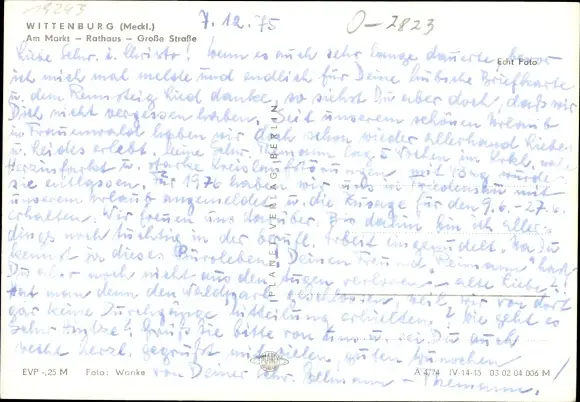 19243
7.12.75
O-2823
WITTENBURG (Meckl.)
Am Markt – Rathaus – Große Straße
Echt Foto
Liebe Schw. i. Christo! Wenn es auch sehr lange dauerte, bevor
ich mich mal melde und endlich für Deine hübsche Briefkarte
u. dem Rennsteig Lied danke, so siehst Du aber doch, daß wir
Dich nicht vergessen haben. Seit unserem schönen Urlaub
in Frauenwald haben wir doch schon wieder allerhand Liebes
u. Leides erlebt. Meine Schw. lag 5 Wochen im
Herzinfarkt u. starke Kreislaufstörungen, mit würde
sie entlassen. Für 1976 haben wir uns in Friedensau mit
unserem Urlaub angemeldet u. die Zusage für den 9.6. – 27.6.
erhalten. Wir freuen uns darüber. Bis dahin bin ich aller-
dings noch tüchtig in der berufl. Arbeit eingemüdelt. Na Du
kennst ja dieses Büroleben. Deinen Freund "Reimann" hast
Du aber noch nicht aus den Augen verloren – alte Liebe!
Hat man denn den Waldpark geschlossen, weil wir von dort
gar keine Durchgänge Mitteilung erhielten. Wie geht es
Schw. Grüß sie bitte von uns u. sei Du auch
recht herzl. gegrüßt mit vielen guten Wünschen
von Deiner Schw. –
PLANET-VERLAG BERLIN
EVP –,25 M
Foto: Wanke
A 4/74 IV-14-45 03 02 04 006 M